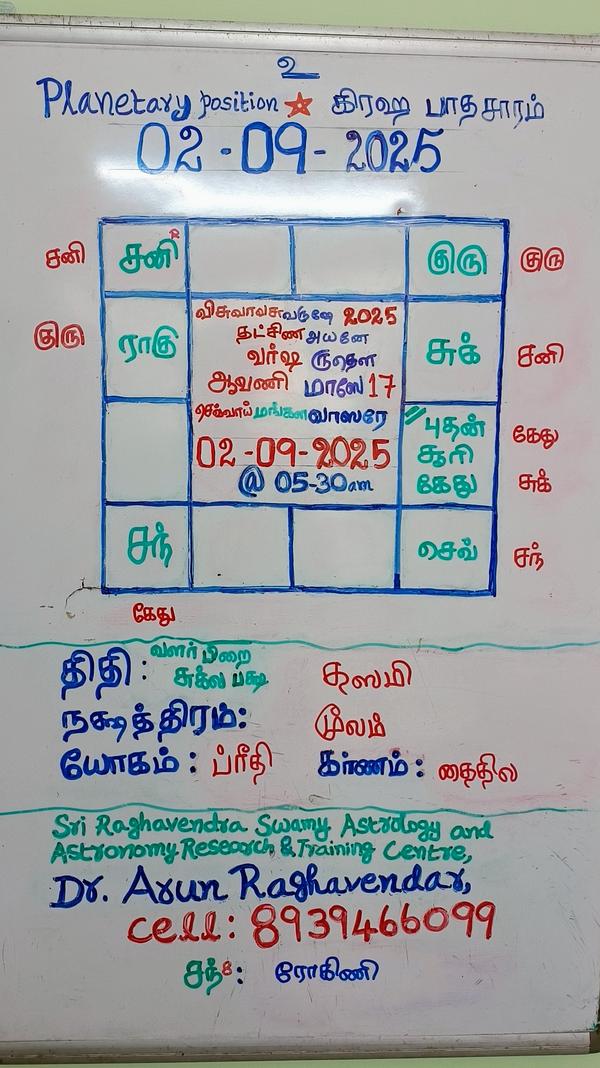 உ
Planetary position கிரஹ பாதசாரம்
02-09-2025
சனி சனி R குரு குரு
விசுவாவசு வருஷே 2025
தட்சிண அயனே
குரு ராகு வர்ஷ ருதௌ சுக் சனி
ஆவணி மாஸே 17
செவ்வாய் மங்கள வாஸரே புதன் கேது
02-09-2025 சூரி
@ 05-30am கேது சுக்
சந் செவ் சந்
கேது
திதி: வளர் பிறை தஸமி
சுக்ல பக்ஷ
நக்ஷத்திரம்: மூலம்
யோகம்: ப்ரீதி கரணம்: தைதில
Sri Raghavendra Swamy Astrology and
Astronomy Research & Training Centre,
Dr. Arun Raghavendar,
cell: 8939466099
சந்8: ரோகிணி